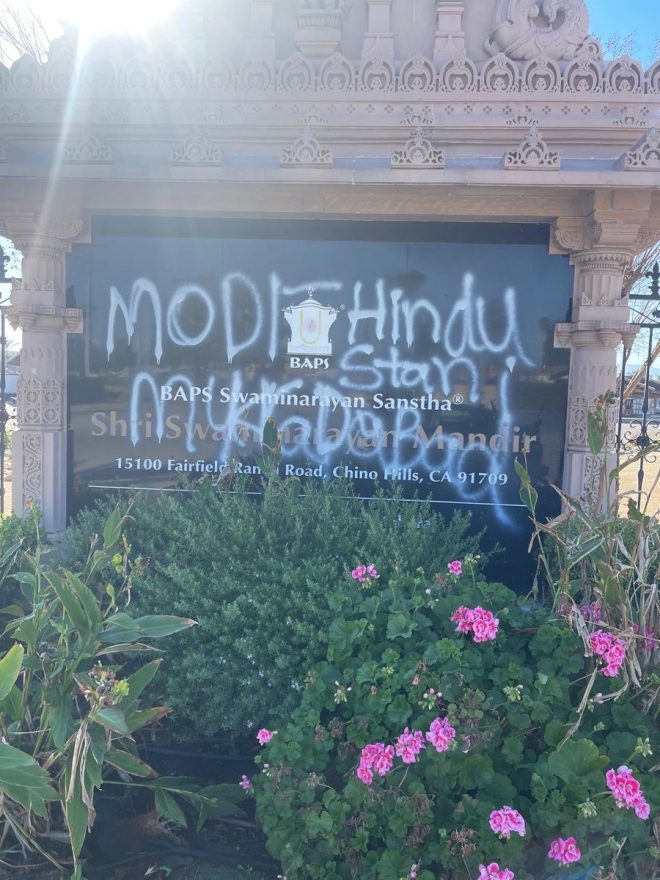 MODI Hindu
Stan
BAPS
BAPS Swaminarayan Sanstha®
Shri Swaminarayan Mandir
15100 Fairfield Ran Road, Chino Hills, CA 91709